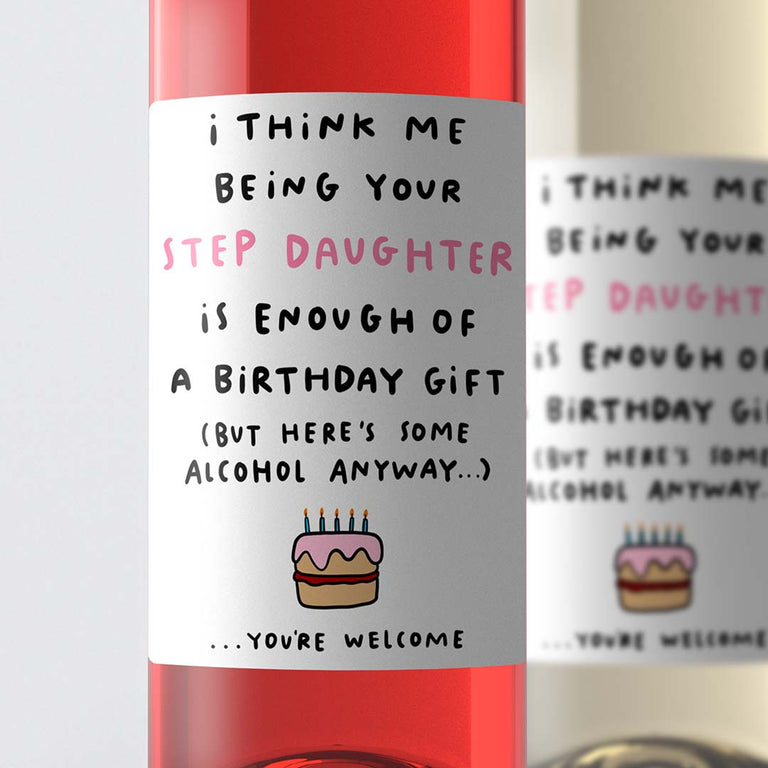 i THiNK ME
BEiNG YOUR
STEP DAUGHTER
iS ENOUGH OF
A BiRTHDAY GiFT
(BUT HERE'S SOME
ALCOHOL ANYWAY...)
...YOU'RE WELCOME
i THiNK ME
BEiNG YOUR
TEP DAUGHT
iS ENOUGH OF
BiRTHDAY Gi
(BUT HERE'S SOME
ALCOHOL ANYWAY..
...YOU'RE WELCOME